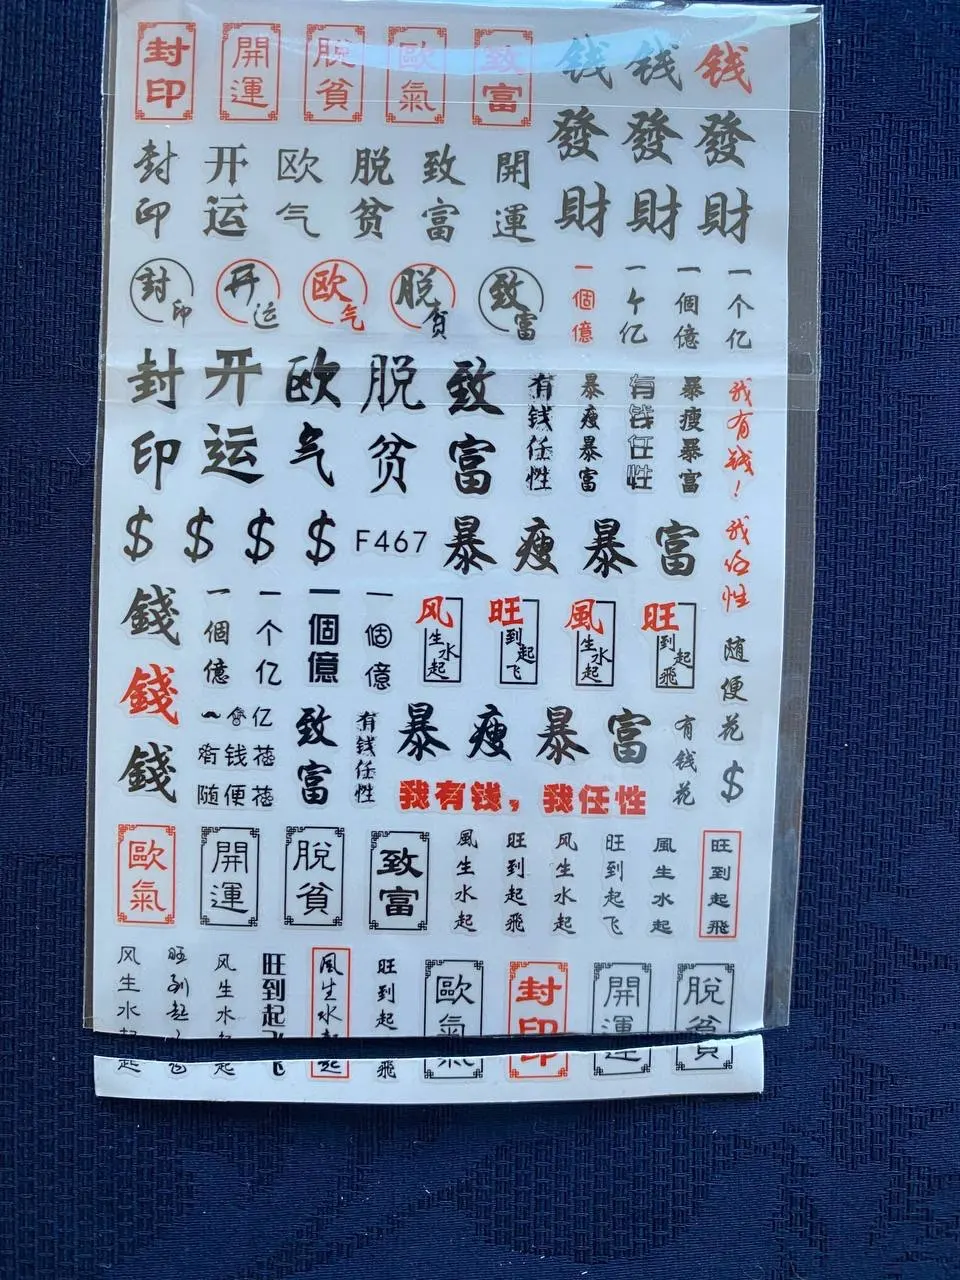 封印 開運 脱貧 歐氣 致富 钱 钱 钱
發財 發財 發財
封印 开运 欧气 脱贫 致富 開運
封印 开运 欧气 脱贫 致富 一個億 一个亿 一個億 一个亿
封印 开运 欧气 脱贫 致富 有钱任性 暴瘦暴富 有钱任性 暴瘦暴富 我有钱！我任性
$ $ $ $ F467 暴瘦暴富
錢 一個億 一个亿 一個億 一個億 风生水起 旺到起飞 風生水起 旺到起飛 随便花$
錢
錢 致富 有钱任性 暴瘦暴富 有钱花
有钱花
随便花
我有钱，我任性
歐氣 開運 脱貧 致富 風生水起 旺到起飛 风生水起 旺到起飞 風生水起 旺到起飛
风生水起 旺到起飞 风生水起 旺到起飞 風生水起 旺到起飛 歐氣 封印 開運 脱貧